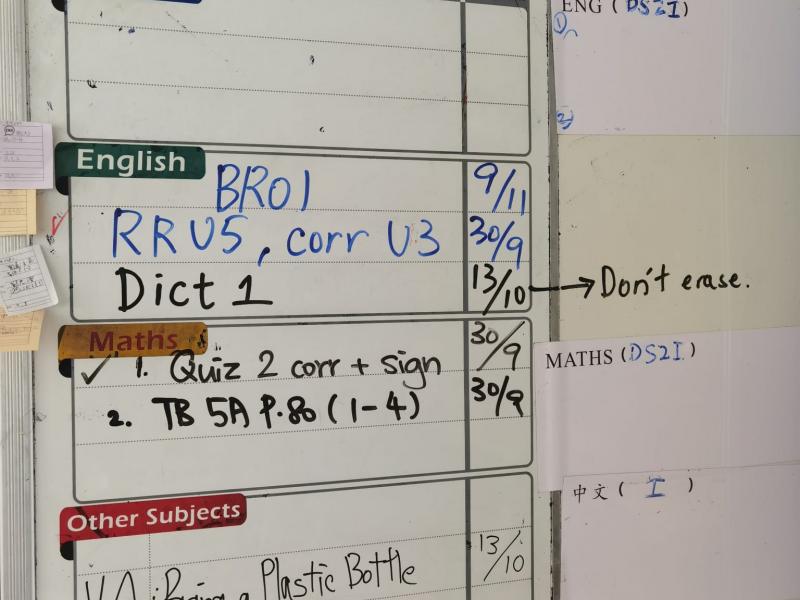 ENG (DS2I)
English
BR01 9/11
RR U5, corr U3 30/9
Dict 1 13/10 → Don't erase.
Maths
✓ 1. Quiz 2 corr + sign 30/9
2. TB 5A P.80 (1-4) 30/9
MATHS (DS2I)
中文 ( I )
Other Subjects
a Plastic Bottle 13/10